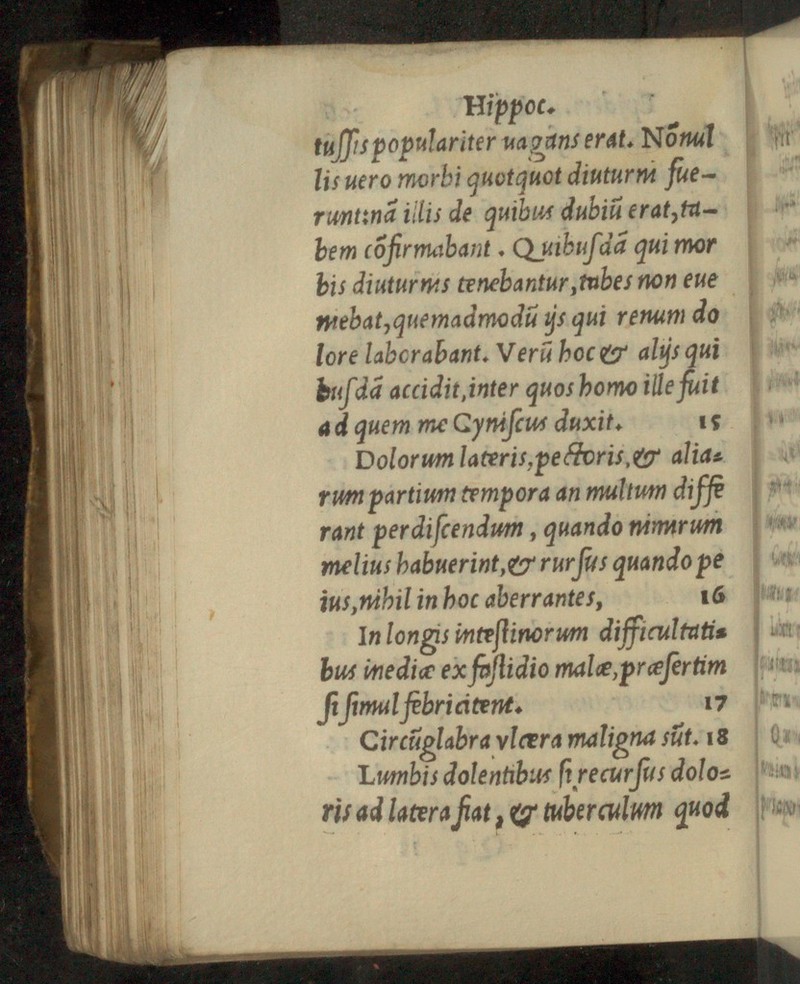 Hippoc.
tuſſis populariter uagans erat. Nõnul
lis uero morbi quotquot diuturni fue-
runt:nã illis de quibus dubiũ erat,ta-
bem cõfirmabant. Quibuſdã qui mor
bis diuturnis tenebantur,tabes non eue
niebat,quemadmodũ ijs qui renum do
lore laborabant. Verũ hoc & alijs qui
buſdã accidit,inter quos homo ille fuit
ad quem me Cyniſcus duxit. 15
Dolorum lateris,pectoris,& alia=
rum partium tempora an multum diffe
rant perdiſcendum, quando nimirum
melius habuerint,& rurſus quando pe
ius,nihil in hoc aberrantes, 16
In longis inteſtinorum difficultati=
bus inediæ ex faſtidio malæ,præſertim
ſi ſimul febricitent. 17
Circũglabra vlcera maligna sũt. 18
Lumbis dolentibus ſi recurſus dolo=
ris ad latera fiat, & tuberculum quod